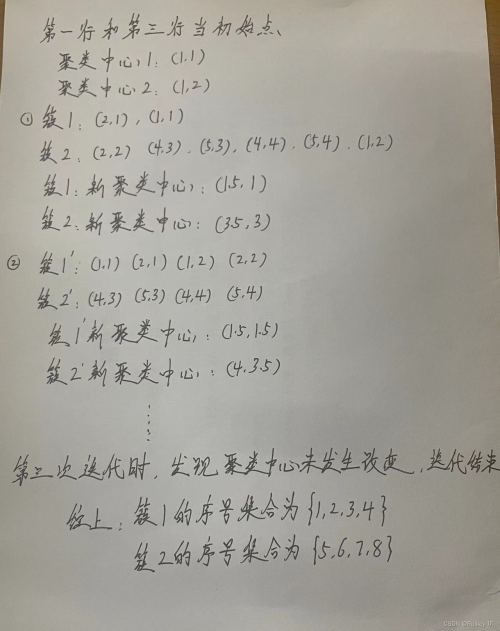 第一行和第三行当初始点、
聚类中心1: (1,1)
聚类中心2: (1,2)
① 簇1: (2,1), (1,1)
簇2: (2,2) (4,3). (5,3), (4,4). (5,4). (1,2)
簇1: 新聚类中心: (1.5, 1)
簇2: 新聚类中心: (3.5, 3)
② 簇1': (1,1) (2,1) (1,2) (2,2)
簇2': (4,3) (5,3) (4,4) (5,4)
簇1'新聚类中心: (1.5,1.5)
簇2'新聚类中心: (4,3.5)
第三次迭代时, 发现聚类中心未发生改变, 迭代结束
综上: 簇1的序号集合为{1,2,3,4}
簇2的序号集合为{5,6,7,8}